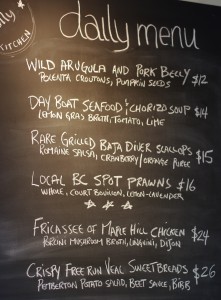 lly
KITCHEN
daily menu
WILD ARUGULA AND PORK BELLY $12
POLENTA CROUTONS, PUMPKIN SEEDS
DAY BOAT SEAFOOD & CHORIZO SOUP $14
LEMON GRAS BROTH, TOMATO, LIME
RARE GRILLED BAJA DIVER SCALLOPS $15
ROMAINE SALSA, CRANBERRY/ORANGE PUREE
LOCAL BC SPOT PRAWNS $16
WHOLE, COURT BOUILLON, LEMON-LAVENDER
FRICASSEE OF MAPLE HILL CHICKEN $24
PORCINI MUSHROOM BROTH, LINGUINI, DIJON
CRISPY FREE RUN VEAL SWEETBREADS $26
PEMBERTON POTATO SALAD, BEET SAUCE, BIBB